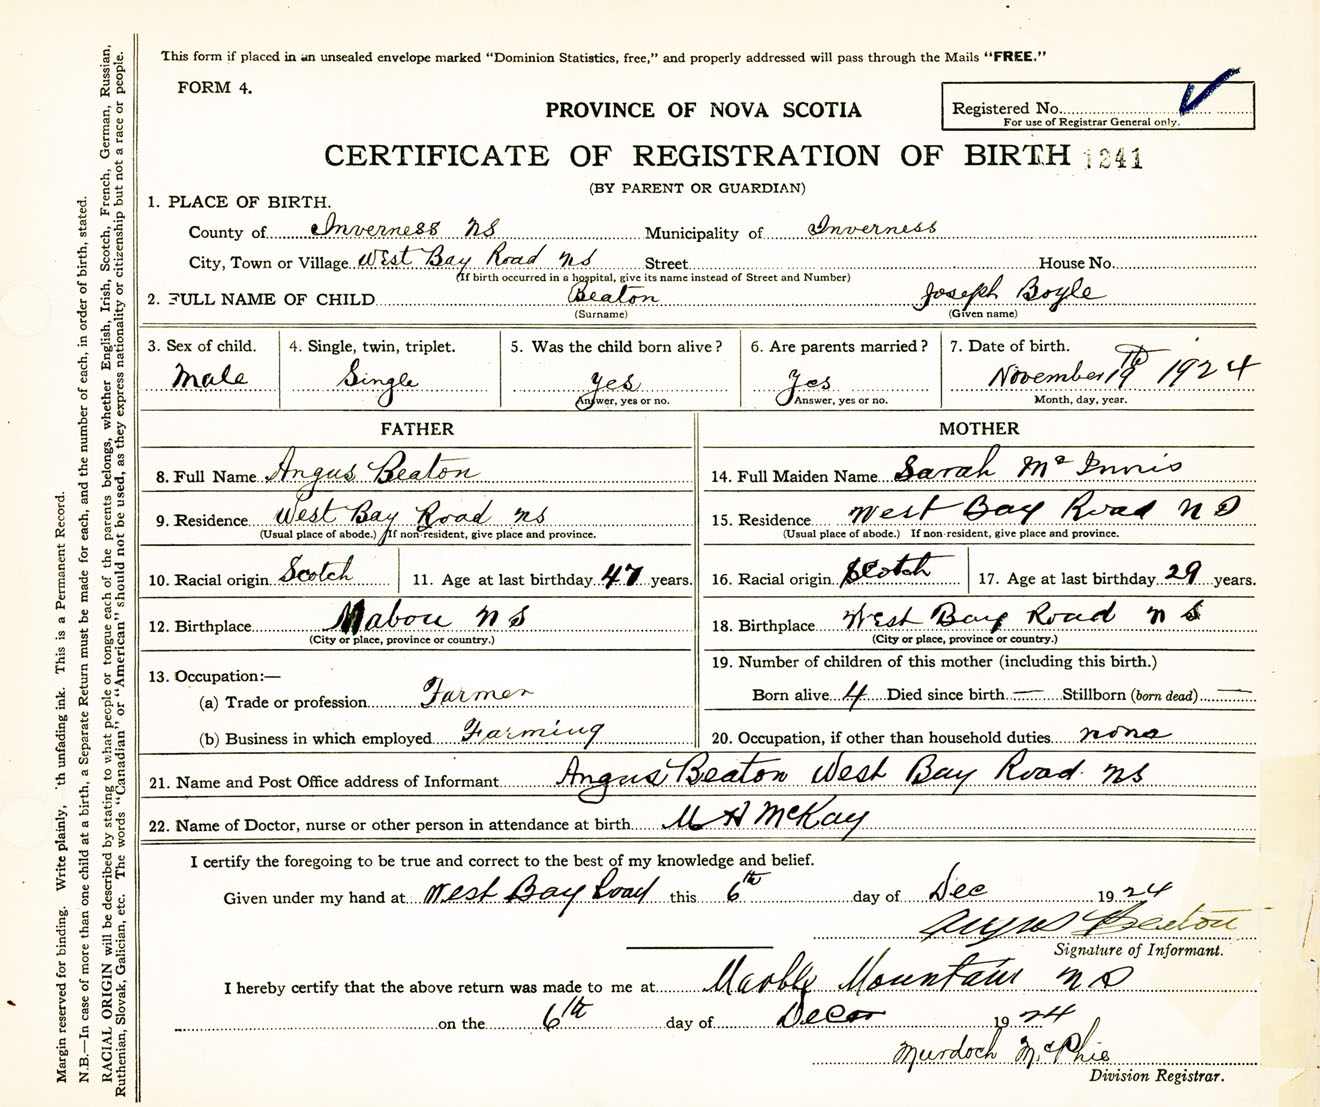 This form if placed in an unsealed envelope marked “Dominion Statistics, free,” and properly addressed will pass through the Mails “FREE.”
FORM 4.
PROVINCE OF NOVA SCOTIA
Registered No.
For use of Registrar General only.
CERTIFICATE OF REGISTRATION OF BIRTH 1241
(BY PARENT OR GUARDIAN)
1. PLACE OF BIRTH.
County of Inverness NS Municipality of Inverness
City, Town or Village West Bay Road NS Street House No.
(If birth occurred in a hospital, give its name instead of Street and Number)
2. FULL NAME OF CHILD Beaton Joseph Boyle
(Surname) (Given name)
3. Sex of child. 4. Single, twin, triplet. 5. Was the child born alive? 6. Are parents married? 7. Date of birth.
Male Single Yes Yes November 19th 1924
Answer, yes or no. Answer, yes or no. Month, day, year.
FATHER MOTHER
8. Full Name Angus Beaton 14. Full Maiden Name Sarah McInnis
9. Residence West Bay Road NS 15. Residence West Bay Road NS
(Usual place of abode.) If non-resident, give place and province. (Usual place of abode.) If non-resident, give place and province.
10. Racial origin Scotch 11. Age at last birthday 47 years. 16. Racial origin Scotch 17. Age at last birthday 29 years.
12. Birthplace Mabou NS 18. Birthplace West Bay Road NS
(City or place, province or country.) (City or place, province or country.)
13. Occupation:— 19. Number of children of this mother (including this birth.)
(a) Trade or profession Farmer Born alive 4 Died since birth — Stillborn (born dead) —
(b) Business in which employed Farming 20. Occupation, if other than household duties none
21. Name and Post Office address of Informant Angus Beaton West Bay Road NS
22. Name of Doctor, nurse or other person in attendance at birth M A McKay
I certify the foregoing to be true and correct to the best of my knowledge and belief.
Given under my hand at West Bay Road this 6th day of Dec 1924
Angus Beaton
Signature of Informant.
I hereby certify that the above return was made to me at Marble Mountain NS
on the 6th day of Decor 1924
Murdoch McPhie
Division Registrar.
Margin reserved for binding. Write plainly, 'th unfading ink. This is a Permanent Record.
N.B.—In case of more than one child at a birth, a Separate Return must be made for each, and the number of each, in order of birth, stated.
RACIAL ORIGIN will be described by stating to what people or tongue each of the parents belongs, whether English, Irish, Scotch, French, German, Russian,
Ruthenian, Slovak, Galician, etc. The words “Canadian” or “American” should not be used, as they express nationality or citizenship but not a race or people.